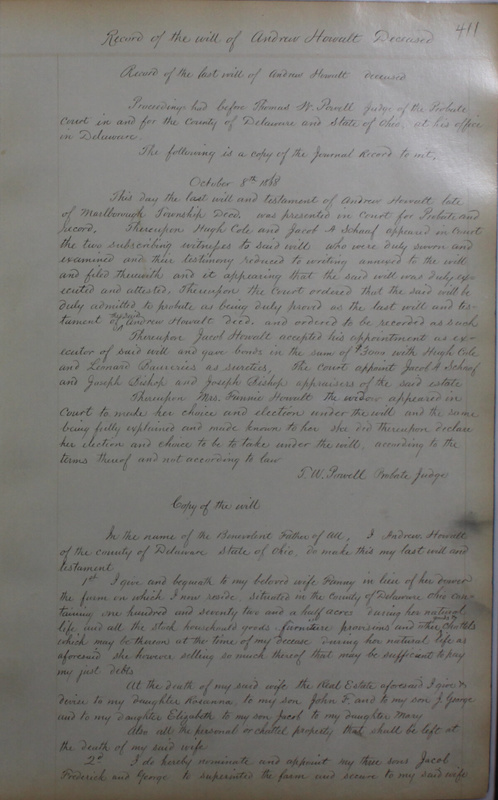 411
Record of the will of Andrew Howalt Deceased
Record of the last will of Andrew Howalt deceased
Proceedings had before Thomas W. Powell Judge of the Probate
Court in and for the County of Delaware and State of Ohio, at his office
in Delaware.
The following is a copy of the Journal Record to wit,
October 8th
This day the last will and testament of Andrew Howalt late
of Marlborough Township Decd. was presented in Court for Probate and
Record. Thereupon Hugh Cole and Jacob A Schaaf appeared in Court
the two subscribing witnesses to said will who were duly sworn and
examined and their testimony reduced to writing annexed to the will
and filed therewith and it appearing that the said will was duly exe-
cuted and attested. Thereupon the Court ordered that the said will be
duly admitted to probate as being duly proved as the last will and tes-
tament of the said Andrew Howalt Decd. and ordered to be recorded as such
Thereupon Jacob Howalt accepted his appointment as ex-
ecutor of said will and gave bonds in the sum of $3000 with Hugh Cole
and Leonard as sureties, The court appoint Jacob A Schaaf
and Joseph Bishop and Joseph Bishop appraisers of the said estate
Thereupon Mrs. Fannie Howalt the widow appeared in
Court to make her choice and election under the will and the same
being fully explained and made known to her she did thereupon declare
her election and choice to be to take under the will, according to the
terms thereof and not according to law
T. W. Powell Probate Judge
Copy of the will
In the name of the Benevolent Father of All, I Andrew Howalt
of the county of Delaware State of Ohio, do make this my last will and
testament
1st I give and bequeath to my beloved wife Fanny in lieu of her dower
the farm on which I now reside situated in the County of Delaware Ohio con-
taining one hundred and seventy two and a half acres during her natural
life and all the stock household goods furniture provisions and other goods & chattels
which may be thereon at the time of my decease during her natural life as
aforesaid she however selling so much thereof that may be sufficient to pay
my just debts
At the death of my said wife the Real Estate aforesaid I give &
devise to my daughter Rosanna to my son John F. and to my son J. George
and to my daughter Elizabeth to my son Jacob to my daughter Mary
Also all the personal or chattel property that shall be left at
the death of my said wife
2d I do hereby nominate and appoint my three sons Jacob
Frederick and George to superintend the farm and secure to my said wife